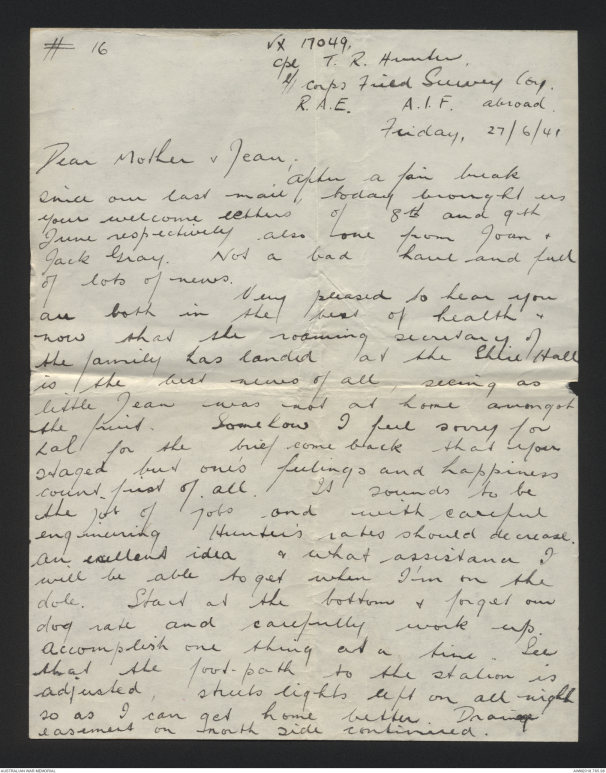 # 16
VX 17049,
Cpl T. R. Hunter,
2/1 Corps Field Survey Coy.
R.A.E. A.I.F. abroad.
Friday, 27/6/41
Dear Mother & Jean,
After a fair break
since our last mail, today brought us
your welcome letters of 8th and 9th
June respectively also one from Joan &
Jack Gray. Not a bad haul and full
of lots of news.
Very pleased to hear you
are both in the best of health &
now that the roaming secretary of
the family has landed at the Shire Hall
is the best news of all, seeing as
little Jean was not at home amongst
the fruit. Somehow I feel sorry for
Hal for the brief come back that you
staged but one's feelings and happiness
count first of all. It sounds to be
the jot of jobs and with careful
engineering Hunter's rates should decrease.
An excellent idea & what assistance I
will be able to get when I'm on the
dole. Start at the bottom & forget our
dog rate and carefully work up.
Accomplish one thing at a time. See
that the foot-path to the station is
adjusted, streets lights left on all night
so as I can get home better. Drainage
easement on north side continued.
AUSTRALIAN WAR MEMORIAL